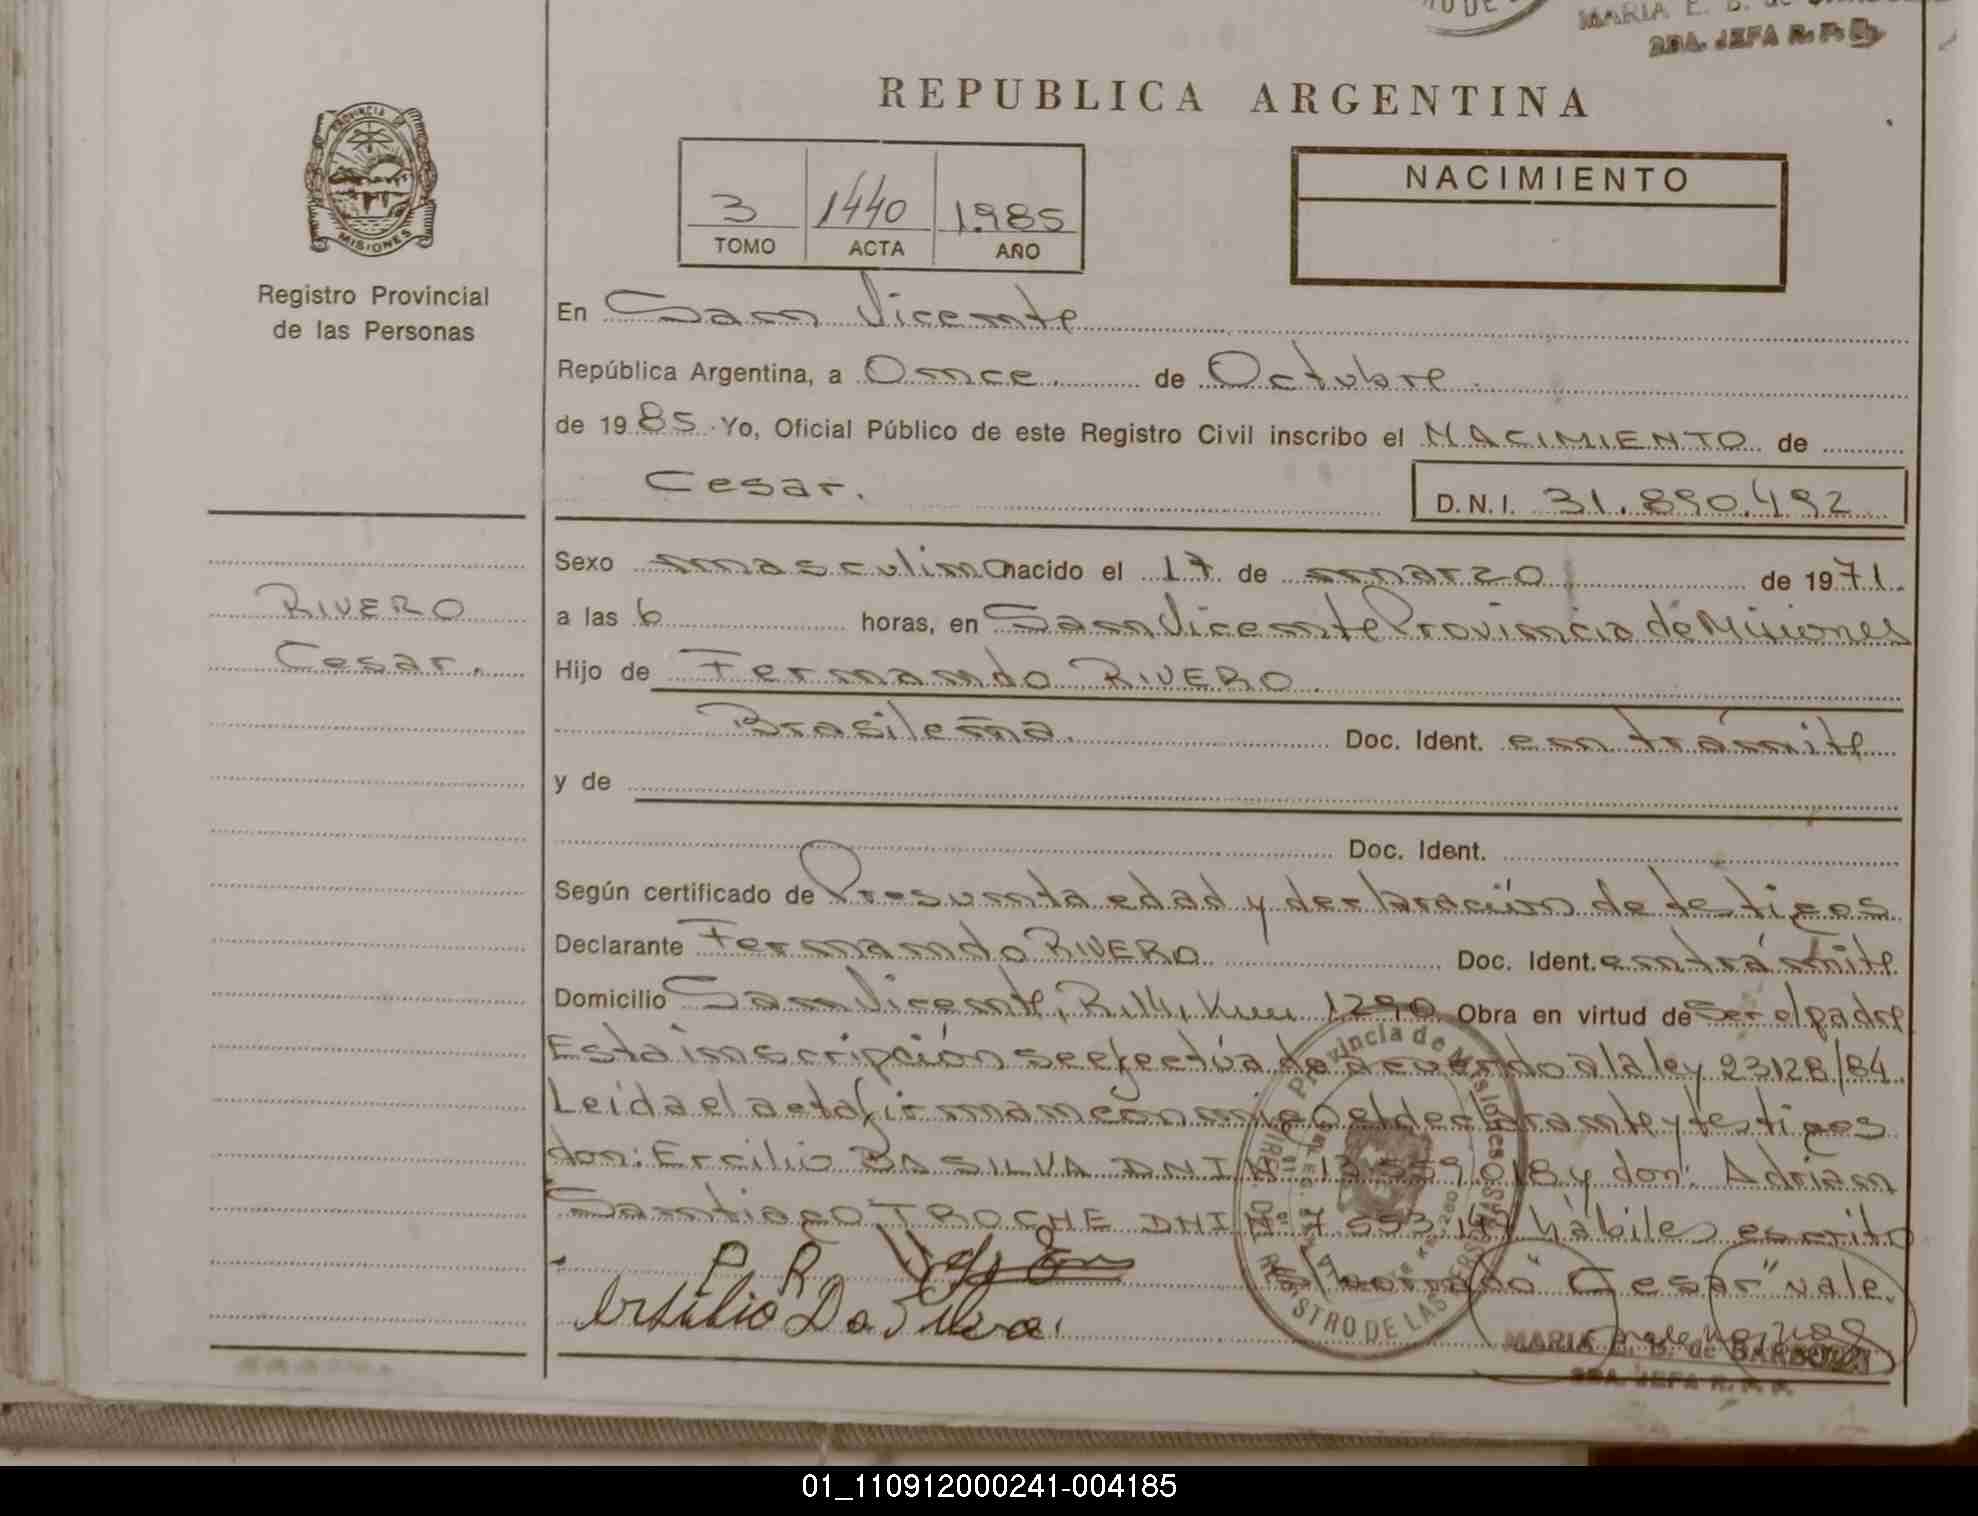 MARIA E. B. de
2DA. JEFA R. P. P.
REPUBLICA ARGENTINA
PROVINCIA DE
MISIONES
Registro Provincial
de las Personas
3 1440 1.985
TOMO ACTA AÑO
NACIMIENTO
En San Vicente
República Argentina, a Once de Octubre
de 1985 Yo, Oficial Público de este Registro Civil inscribo el NACIMIENTO de
Cesar.
D.N.I. 31.890.492
RIVERO
Cesar.
Sexo masculino nacido el 17 de marzo de 1971.
a las 6 horas, en San Vicente Provincia de Misiones
Hijo de Fernando RIVERO
Brasileña. Doc. Ident. en trámite
y de
Doc. Ident.
Según certificado de Presunta edad y declaración de testigos
Declarante Fernando RIVERO Doc. Ident. en trámite
Domicilio San Vicente, R.14, Km 1290 Obra en virtud de Ser el padre
Esta inscripción se efectúa de acuerdo a la ley 23128/84
Leida el acta firman conmigo el declarante y testigos
don: Ercilio DA SILVA DNI Nº 13.559.018 y don: Adrian
Santiago TROCHE DNI Nº 7.553.149 hábiles escrito
s/borrado "Cesar" vale.
P. R.
Ersilio Da Silva.
Provincia de Misiones
REGISTRO DE LAS PERSONAS
MARIA E. B. de BARBOZA
2DA. JEFA R. P. P.
01_110912000241-004185